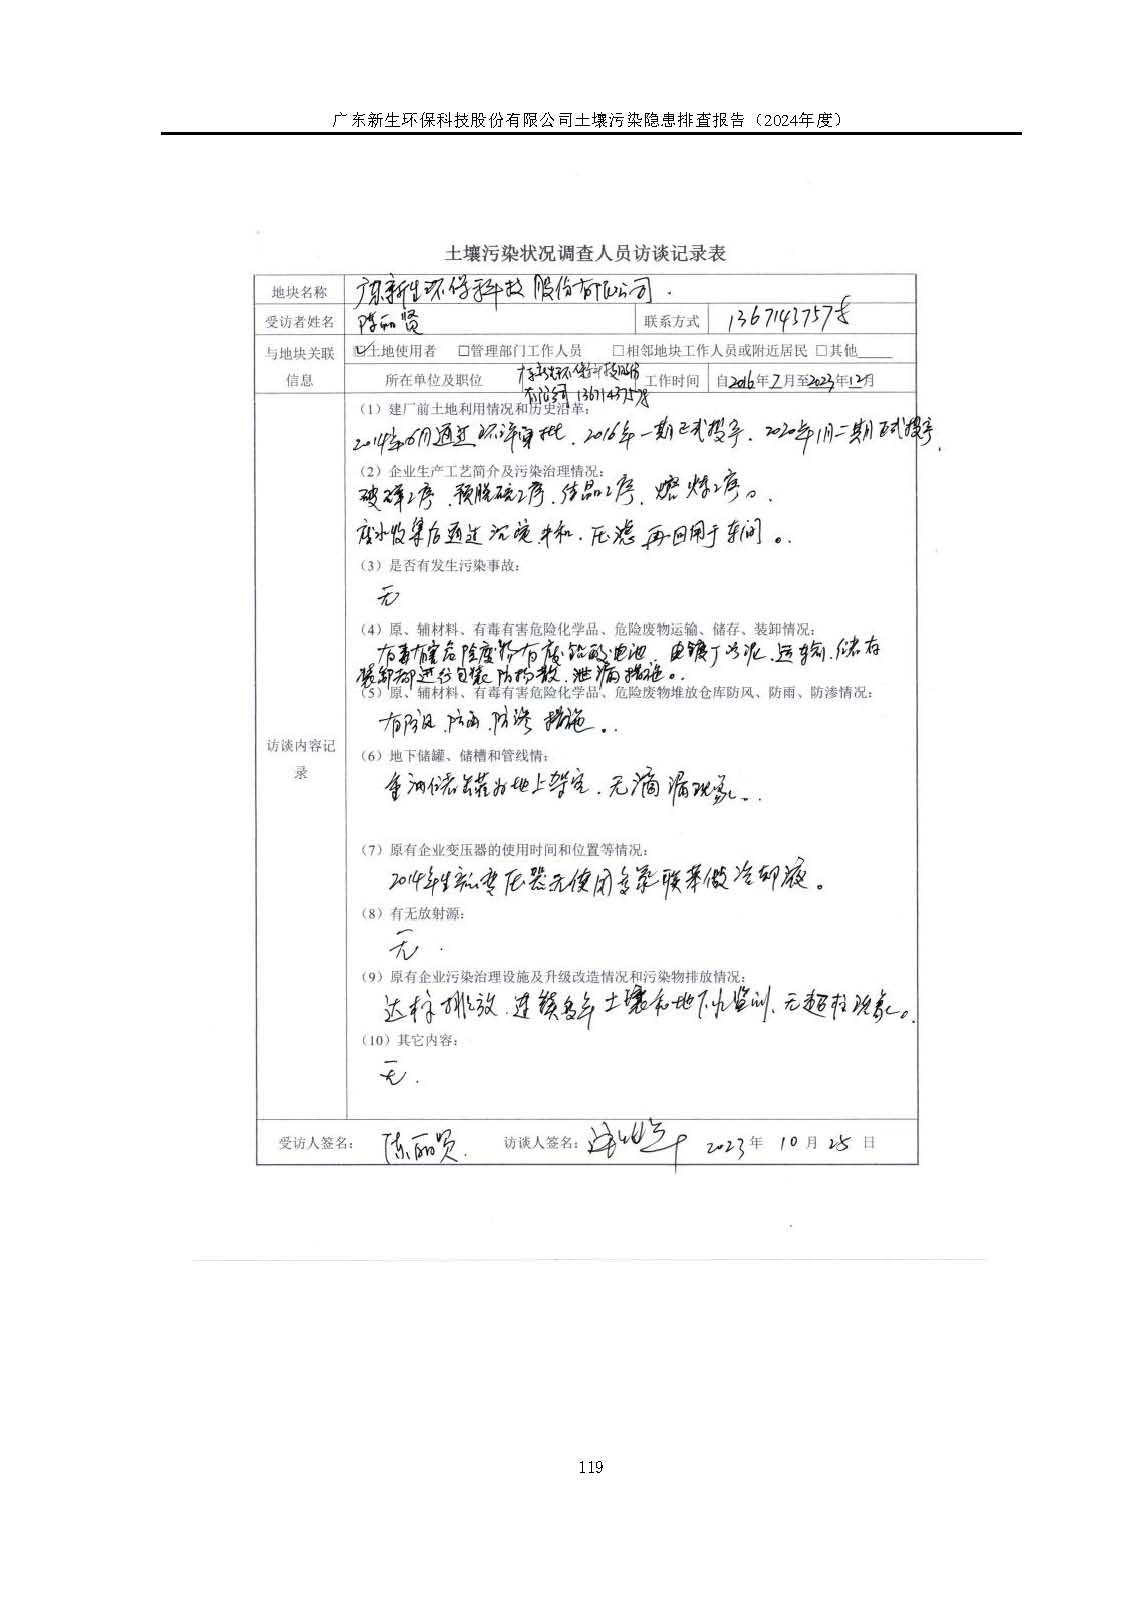 广东新生环保科技股份有限公司土壤污染隐患排查报告（2024年度）
土壤污染状况调查人员访谈记录表
地块名称 广东新生环保科技股份有限公司.
受访者姓名 陈丽贤 联系方式 1367143757
与地块关联信息 ☑土地使用者 □管理部门工作人员 □相邻地块工作人员或附近居民 □其他____
所在单位及职位 广东新生环保科技股份有限公司 1367143757 工作时间 自2016年7月至2023年12月
访谈内容记录
（1）建厂前土地利用情况和历史沿革：
2014年6月通过环评审批，2016年一期正式投产，2020年1月二期正式投产，
（2）企业生产工艺简介及污染治理情况：
破碎工序、预脱硫工序、结晶工序、熔炼工序。
废水收集后通过沉淀、中和、压滤再回用于车间。
（3）是否有发生污染事故：
无
（4）原、辅材料、有毒有害危险化学品、危险废物运输、储存、装卸情况：
有毒有害危险废物有废铅酸电池、电镀厂污泥，运输、储存
装卸都进行包装防扬散、泄漏措施。
（5）原、辅材料、有毒有害危险化学品、危险废物堆放仓库防风、防雨、防渗情况：
有防风、防雨、防渗措施。
（6）地下储罐、储槽和管线情：
重油储罐为地上架空，无滴漏现象。
（7）原有企业变压器的使用时间和位置等情况：
2014年生产变压器无使用多氯联苯做冷却液。
（8）有无放射源：
无.
（9）原有企业污染治理设施及升级改造情况和污染物排放情况：
达标排放，连续多年土壤和地下水监测，无超标现象。
（10）其它内容：
无.
受访人签名： 陈丽贤. 访谈人签名： 2023年10月25日
119